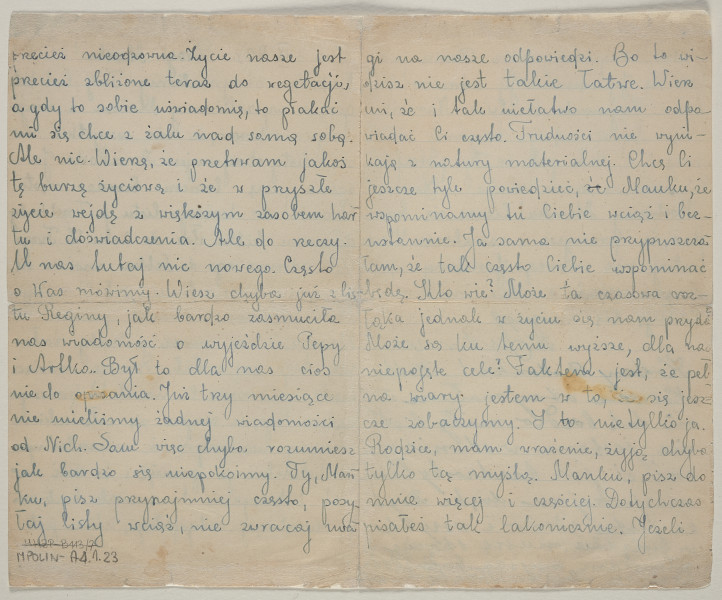 przecież nieodzowna. Życie nasze jest
przecież zbliżone teraz do wegetacji,
a gdy to sobie uświadomię, to płakać
mi się chce z żalu nad samą sobą.
Ale nic. Wierzę, że przetrwam jakoś
tę burzę życiową i że w przyszłe
życie wejdę z większym zasobem har
tu i doświadczenia. Ale do rzeczy.
U nas tutaj nic nowego. Często
o Was mówimy. Wiesz chyba już z lis
tu Reginy, jak bardzo zasmuciła
nas wiadomość o wyjeździe Pepy
i Artko.. Był to dla nas cios
nie do opisania. Już trzy miesiące
nie mieliśmy żadnej wiadomości
od Nich. Sam więc chyba rozumiesz
jak bardzo się niepokoimy. Ty, Mań
ku, pisz przynajmniej często, posy-
łaj listy wciąż, nie zwracaj uwa
MPOLIN-A4.1.23
gi na nasze odpowiedzi. Bo to wi-
dzisz nie jest takie łatwe. Wierz
mi, że i tak niełatwo nam odpo
wiadać Ci często. Trudności nie wyni-
kają z natury materialnej. Chcę Ci
jeszcze tyle powiedzieć, że Mańku, że
wspominamy tu Ciebie wciąż i bez-
ustannie. Ja sama nie przypuszcza
łam, że tak często Ciebie wspominać
będę. Kto wie? Może ta czasowa roz-
łąka jednak w życiu się nam przyda?
Może są ku temu wyższe, dla na
niepojęte cele? Faktem jest, że peł
na wiary jestem w to, iż się jesz-
cze zobaczymy. I to nie tylko ja.
Rodzice, mam wrażenie, żyją chyba
tylko tą myślą. Mańku, pisz do
mnie więcej i częściej. Dotychczas
pisałeś tak lakonicznie. Jeżeli